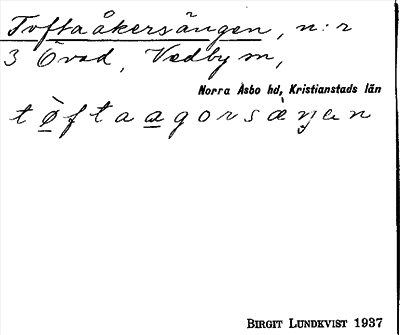 Toftaåkersängen, n:r
3 Övad, Vedby m,
Norra Åsbo hd, Kristianstads län
tø̀ftaagorsæ̀ŋen
BIRGIT LUNDKVIST 1937